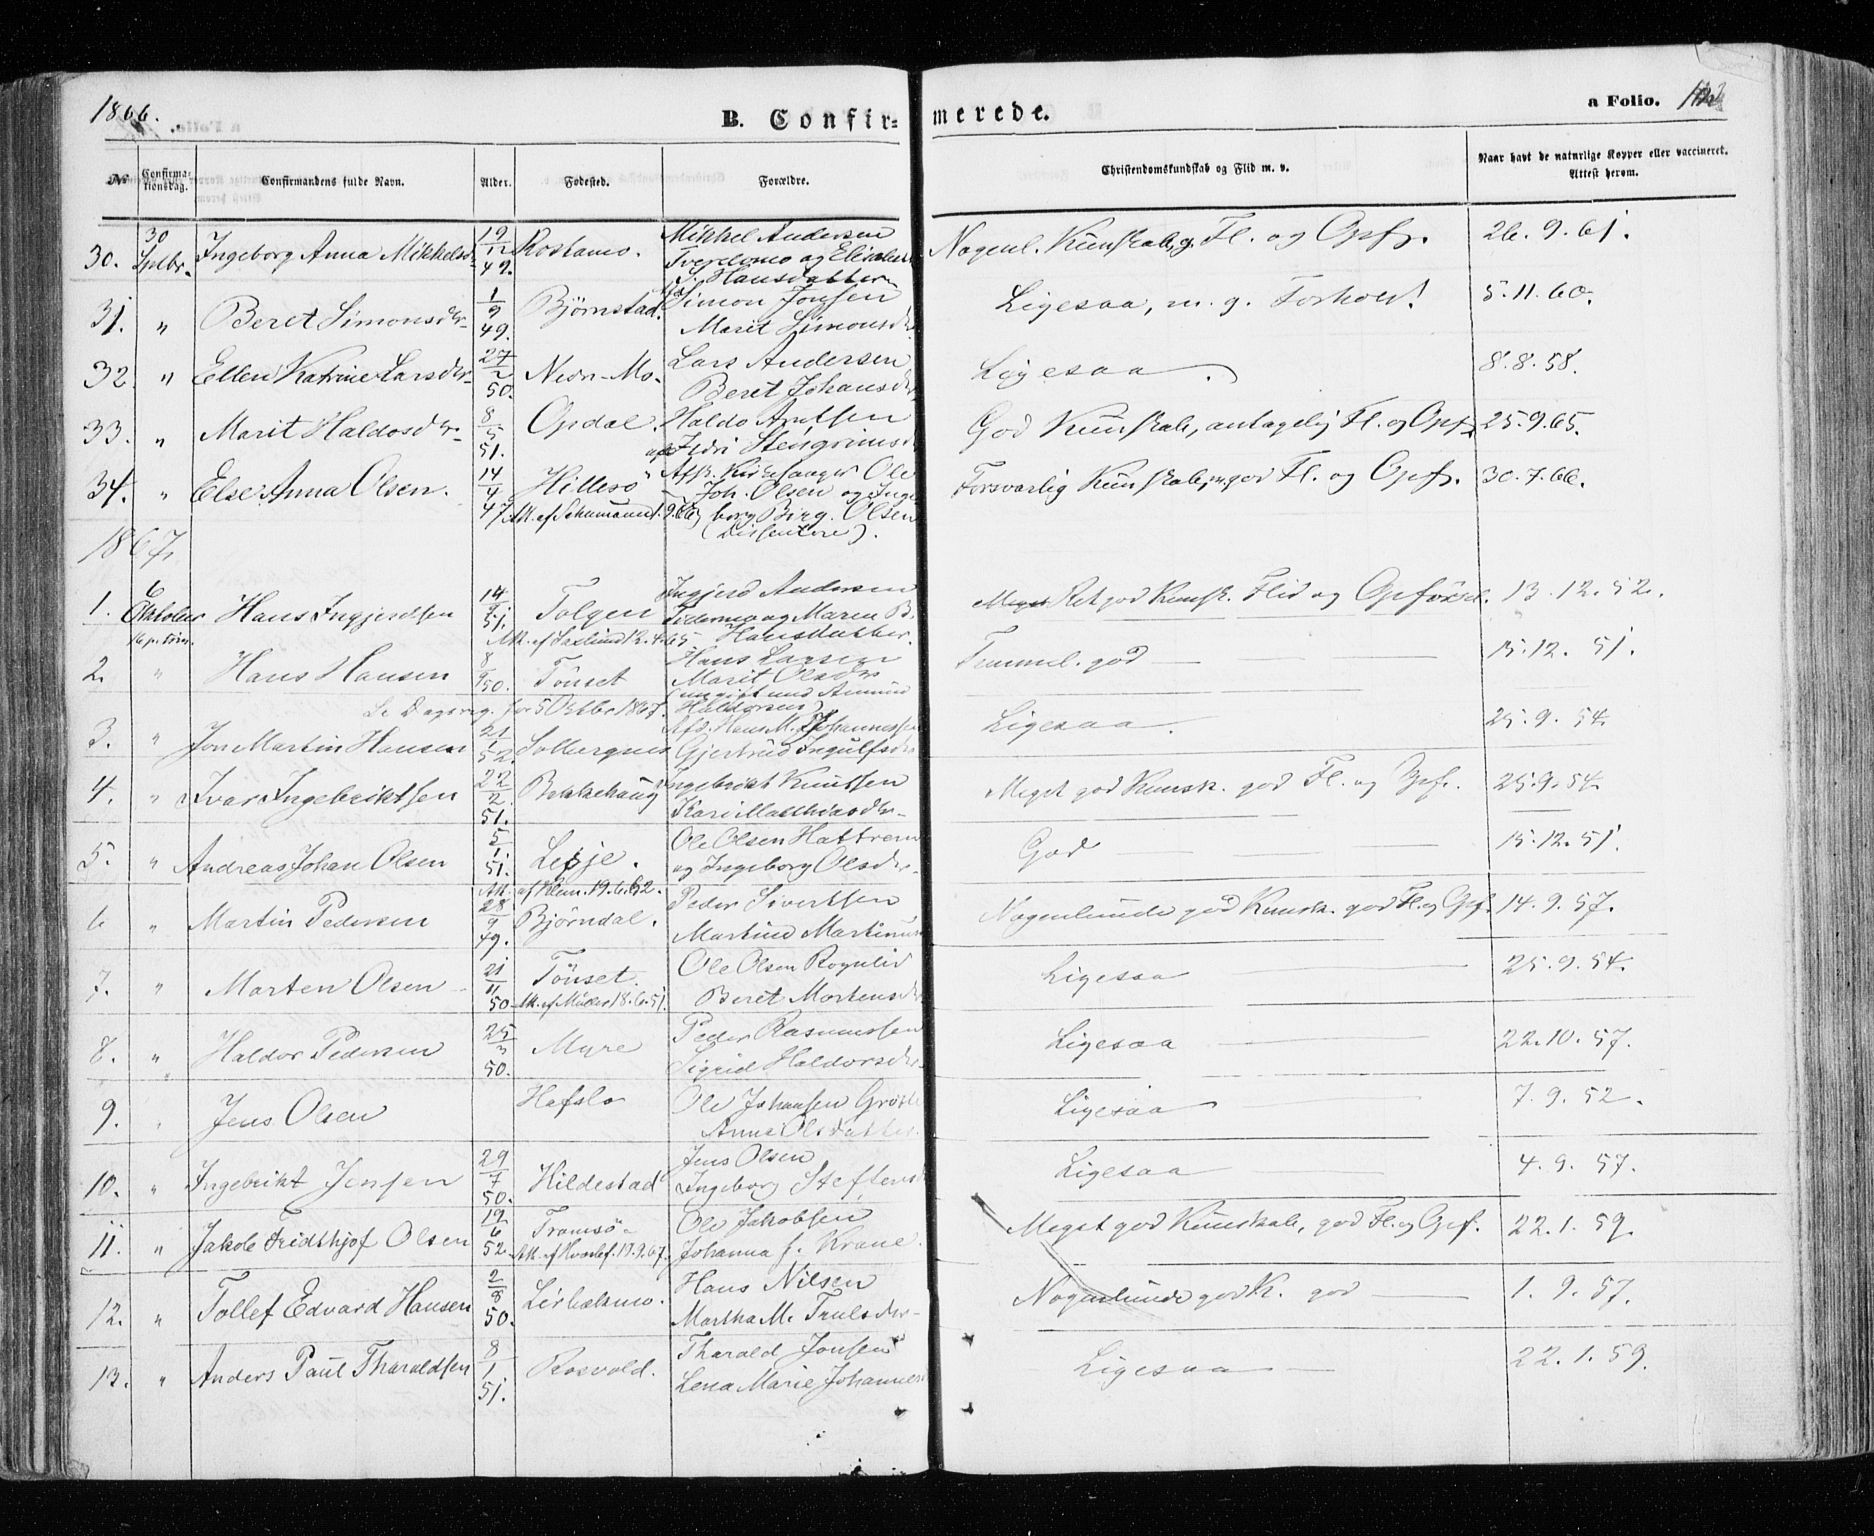 1866.
B. Confir=
merede.
a Folio.
No
Confirma-
tionsdag.
Confirmandens fulde Navn.
Alder.
Fødested.
Forældre.
Christendomskundskab og Flid m. v.
Naar havt de naturlige Kopper eller vaccineret.
Attest herom.
30. 30 Sptbr. Ingeborg Anna Mikkelsd 19/12 49. Rostamo. Mikkel Andersen
og Elisabeth
S. Hansdatter
Nogenl. Kunskab, g. Fl. og Opf. 26.9.61.
31. " Beret Simonsdr 1/9 49. Bjørnstad. Simon Jonsen
Marit Simonsdr
Ligesaa, m. g. Forhold! 5.11.60.
32. " Ellen Katrine Larsdr 27/2 50. Nedr-Mo. Lars Andersen
Beret Johansdr
Ligesaa. 8.8.58.
33. " Marit Haldosdr 8/5 51. Opdal. Haldo Arntsen
Stengrimsd
God Kunskab, antagelig Fl. og Opf. 25.9.65.
34. " Else Anna Olsen. 14/4 47. Hillesø Afsk. Kirkesanger Ole
Joh. Olsen og Inge
borg Birg. Olsen
(Dissentere).
Att. af Schumann 1.9.66
Forsvarlig Kunskab, m. god Fl. og Opf. 30.7.66.
1867.
1. 6 Oktober Hans Ingjerdtsen 14/9 51. Tolgen Ingjerd Andersen
og Maren B.
Hansdatter.
Att. af 12.4.65
Meget Ret god Kunsk. Flid og Opførsel. 13.12.52.
2. " Hans Hansen 8/9 50. Tønset Hans Larsen
Marit Olsdr
(ungift med Amund
Haldorsen)
Se Dagsreg. for 5 Oktbr 1867.
Temmel. god 15.12.51.
3. " Jon Martin Hansen 21/1 52. Solbergnes Afd. Hans M. Johannessen
Gjertrud Ingulfsdr
Ligesaa. 25.9.54.
4. " Ivar Ingebriktsen 22/2 51. Bakkehaug Ingebrikt Knutsen
Kari Matthiasdr
Meget god Kunsk. god Fl. og Opf. 25.9.54.
5. " Andreas Johan Olsen 5/1 51. Lesje. Ole Olsen Hattrem
og Ingeborg Olsdr
God 15.12.51.
Att. af Klem. 19.6.62.
6 " Martin Pedersen 28/9 49. Bjørndal. Peder Sivertsen
Martine Martinusd
Nogenlunde god Kunsk. god Fl. og Opf. 14.9.57.
7. " Morten Olsen 21/11 50 Tønset. Ole Olsen Rognlid
Beret Mortensdr
Att. af Müller 18.6.51.
Ligesaa 25.9.54.
8. " Haldor Pedersen 25/3 50. Myre Peder Rasmussen
Sigrid Haldorsdr
Ligesaa 22.10.57.
9. " Jens Olsen Hafslo Ole Johansen
Anna Olsdatter
Ligesaa 7.9.52.
10. " Ingebrikt Jensen 29/7 50. Hildestad Jens Olsen
Ingeborg Steffensd
Ligesaa 4.9.57.
11. " Jakob Fridthjof Olsen 19/6 52. Tromsø Ole Jakobsen
Johanna f. Krane.
Att. af Hvoslef. 19.9.67.
Meget god Kunskab, god Fl. og Opf. 22.1.59.
12. " Tollef Edvard Hansen 2/8 50. Lerbakmo. Hans Nilsen
Martha M. Trulsdr
Nogenlunde god K. god 1.9.57.
13. " Anders Paul Tharaldsen 8/1 51. Rosvold. Tharald Jonsen
Lena Marie Johannesd
Ligesaa 22.1.59.